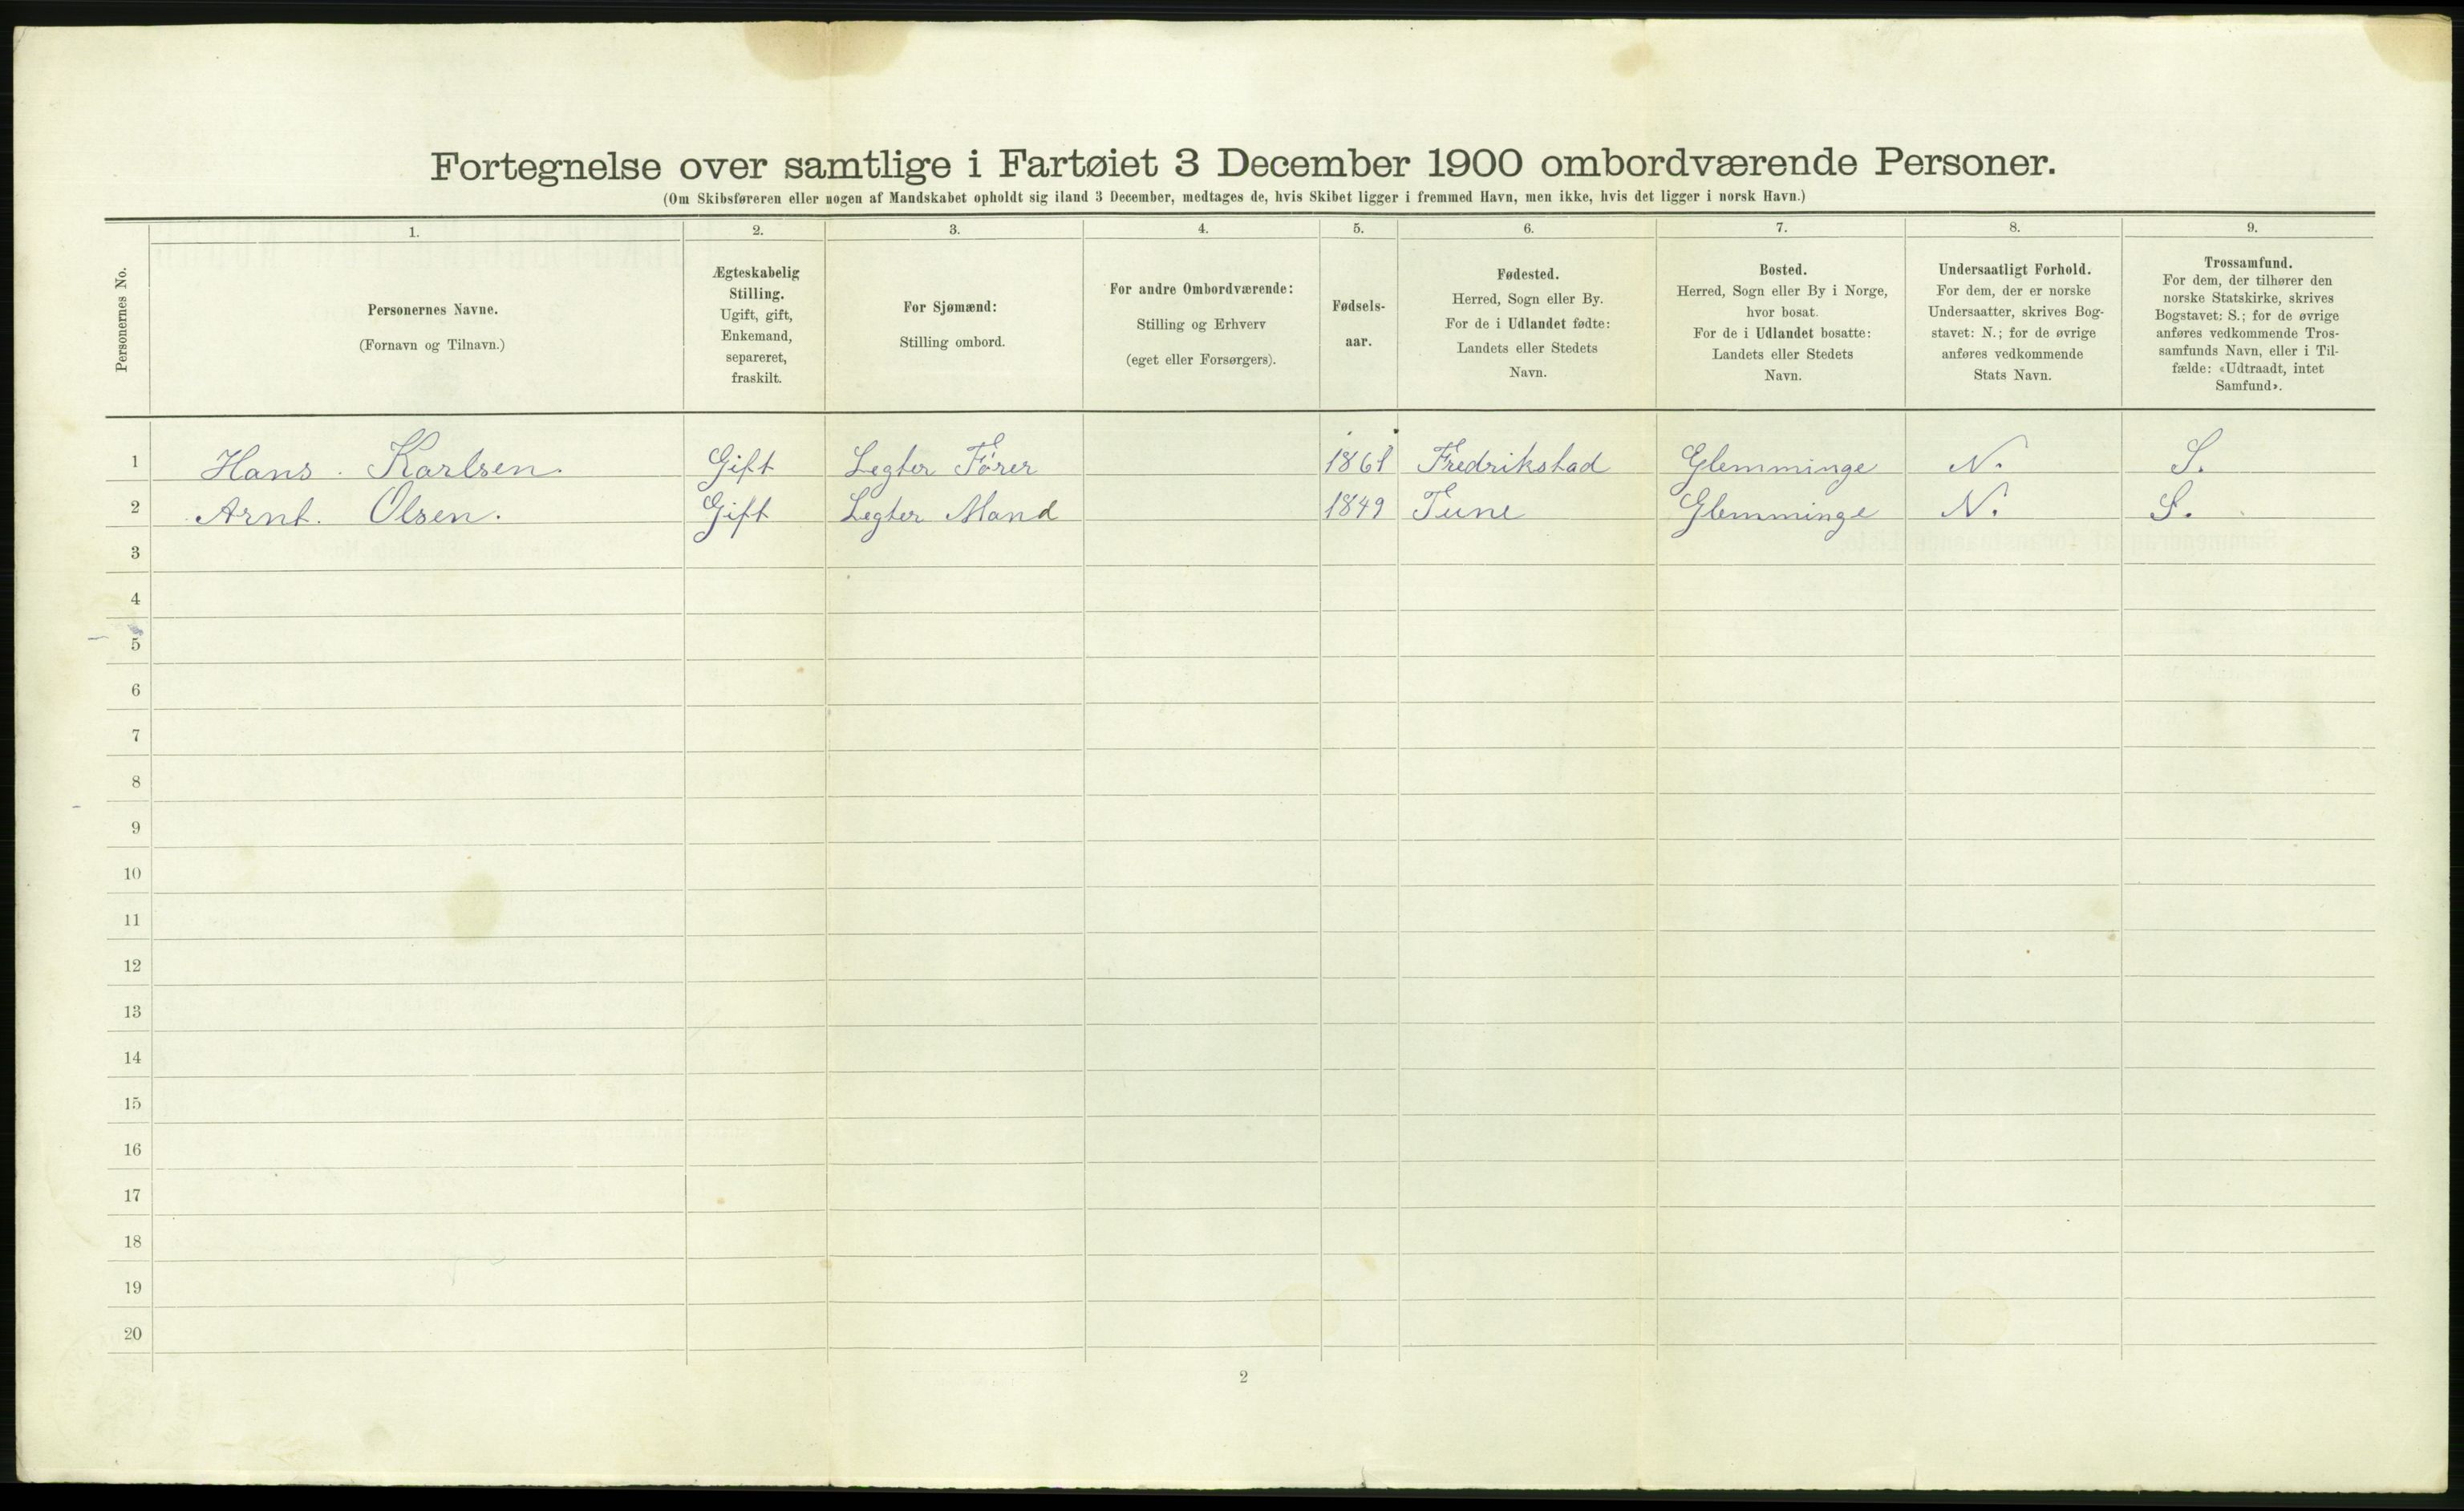 Fortegnelse over samtlige i Fartøiet 3 December 1900 ombordværende Personer.
(Om Skibsføreren eller nogen af Mandskabet opholdt sig iland 3 December, medtages de, hvis Skibet ligger i fremmed Havn, men ikke, hvis det ligger i norsk Havn.)
Personernes No.
1.
Personernes Navne.
(Fornavn og Tilnavn.)
2.
Ægteskabelig
Stilling.
Ugift, gift,
Enkemand,
separeret,
fraskilt.
3.
For Sjømænd:
Stilling ombord.
4.
For andre Ombordværende:
Stilling og Erhverv
(eget eller Forsørgers).
5.
Fødsels-
aar.
6.
Fødested.
Herred, Sogn eller By.
For de i Udlandet fødte:
Landets eller Stedets
Navn.
7.
Bosted.
Herred, Sogn eller By i Norge,
hvor bosat.
For de i Udlandet bosatte:
Landets eller Stedets
Navn.
8.
Undersaatligt Forhold.
For dem, der er norske
Undersaatter, skrives Bog-
stavet: N.; for de øvrige
anføres vedkommende
Stats Navn.
9.
Trossamfund.
For dem, der tilhører den
norske Statskirke, skrives
Bogstavet: S.; for de øvrige
anføres vedkommende Tros-
samfunds Navn, eller i Til-
fælde: «Udtraadt, intet
Samfund».
1 Hans. Karlsen. Gift Legter Fører 1861 Fredrikstad Glemminge N. S.
2 Arnt. Olsen. Gift Legter Mand 1849 Tune Glemminge N. S.
3
4
5
6
7
8
9
10
11
12
13
14
15
16
17
18
19
20
2